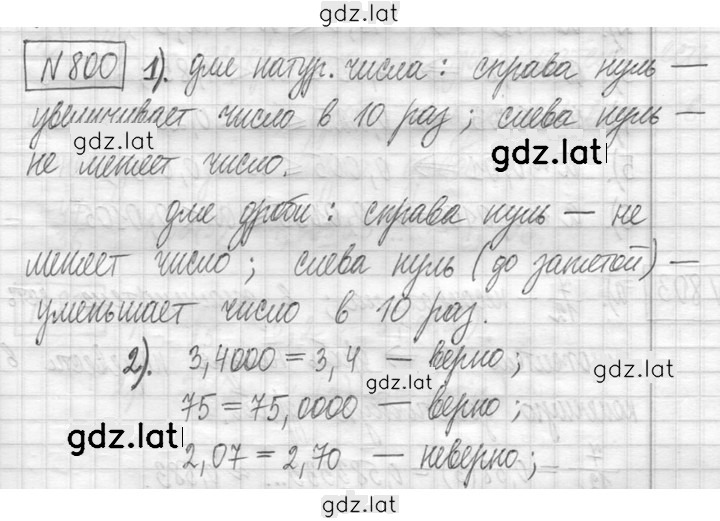 gdz.lat
N 800 1). для натур. числа: справа нуль —
увеличивает число в 10 раз; слева нуль —
gdz.lat
gdz.lat
не меняет число.
для дроби: справа нуль — не
меняет число; слева нуль (до запятой) —
уменьшает число в 10 раз.
gdz.lat
2). 3,4000 = 3,4 — верно;
gdz.lat
75 = 75,0000 — верно;
gdz.lat
2,07 = 2,70 — неверно;
gdz.lat